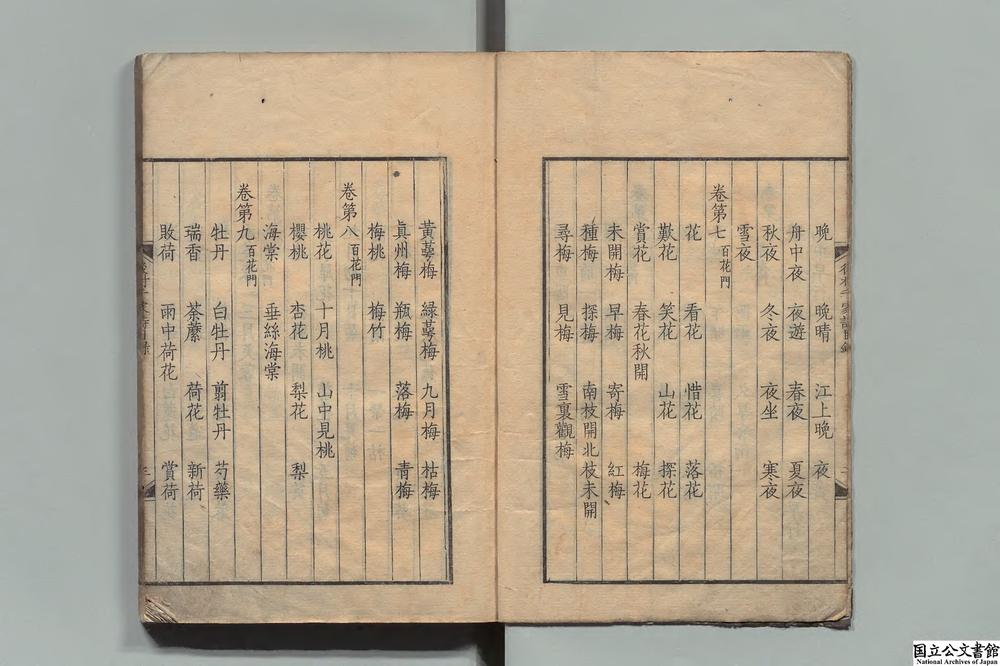 晚　晚晴　江上晚　夜
舟中夜　夜遊　春夜　夏夜
秋夜　冬夜　夜坐　寒夜
雪夜
卷第七　百花門
花　看花　惜花　落花
歎花　笑花　山花　探花
賞花　春花秋開　梅花
未開梅　早梅　寄梅　紅梅
種梅　探梅　南枝開北枝未開
尋梅　見梅　雪裏觀梅
黃萼梅　綠萼梅　九月梅　枯梅
真州梅　瓶梅　落梅　青梅
梅桃　梅竹
卷第八　百花門
桃花　十月桃　山中見桃
櫻桃　杏花　梨花　梨
海棠　垂絲海棠
卷第九　百花門
牡丹　白牡丹　翦牡丹　芍藥
瑞香　荼蘼　荷花　新荷
敗荷　雨中荷花　賞荷
国立公文書館
National Archives of Japan